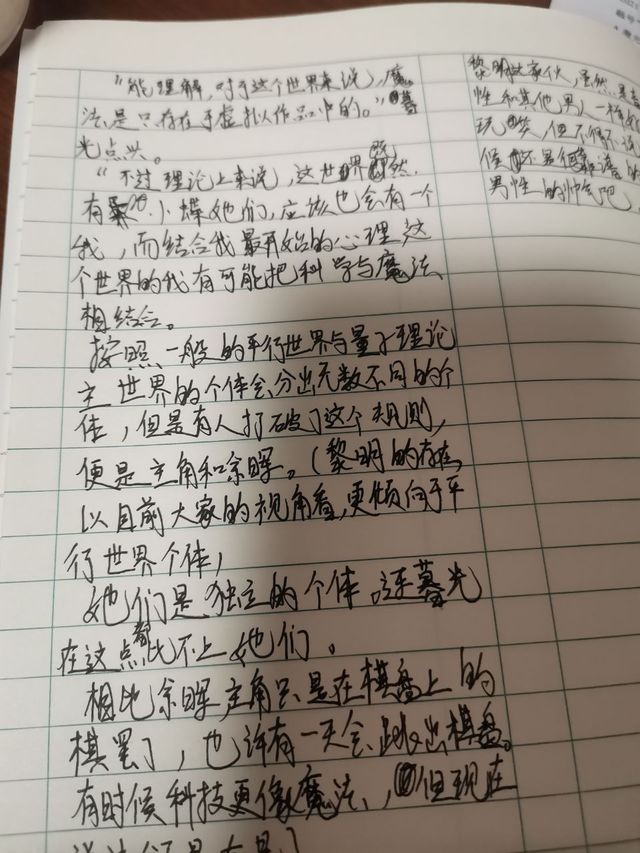 “能理解，对于这个世界来说，魔
法是只存在于虚拟作品中的。”暮
光点头。
“不过理论上来说，这世界既然
有小蝶她们，应该也会有一个
我，而结合我最开始的心理，这
个世界的我有可能把科学与魔法
相结合。
按照一般的平行世界与量子理论
主世界的个体会分出无数不同的个
体，但是有人打破了这个规则，
便是主角和余晖。（黎明的存在，
以目前大家的视角看，更倾向于平
行世界个体）
她们是独立的个体。连暮光
在这点都比不上她们。
相比余晖主角只是在棋盘上的
棋罢了，也许有一天会跳出棋盘。
有时候科技更像魔法，但现在
黎明这家伙，虽然
性和其他男人一样
玩笑，但不得不说
候还是很靠谱的
男性的帅气吧